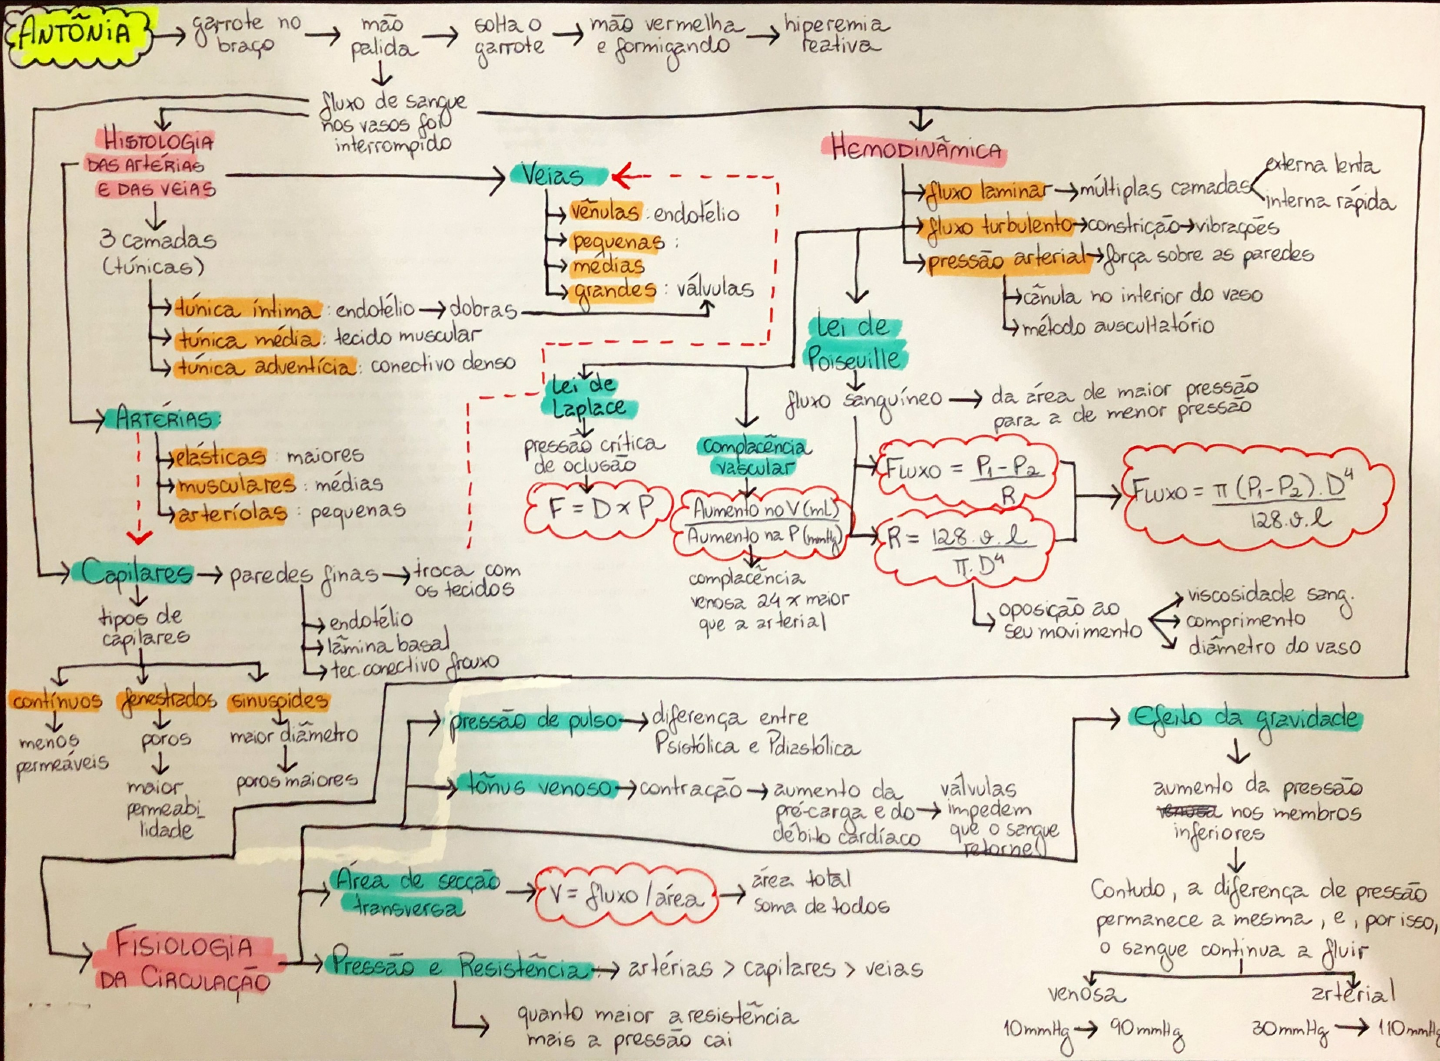 ANTÔNIA
garrote no
braço
mão
palida
solta o
garrote
mão vermelha
e formigando
hiperemia
reativa
fluxo de sangue
nos vasos foi
interrompido
HISTOLOGIA
DAS ARTÉRIAS
E DAS VEIAS
3 camadas
(túnicas)
túnica íntima: endotélio → dobras
túnica média: tecido muscular
túnica adventícia: conectivo denso
Veias
vênulas: endotélio
pequenas:
médias
grandes: válvulas
HEMODINÂMICA
fluxo laminar → múltiplas camadas
externa lenta
interna rápida
fluxo turbulento → constrição → vibrações
pressão arterial → força sobre as paredes
cânula no interior do vaso
método auscultatório
ARTÉRIAS:
elásticas: maiores
musculares: médias
arteríolas: pequenas
Lei de
Laplace
pressão crítica
de oclusão
F = D x P
complacência
vascular
Aumento no V (mL)
Aumento na P (mmHg)
complacência
venosa 24 x maior
que a arterial
Lei de
Poiseuille
fluxo sanguíneo → da área de maior pressão
para a de menor pressão
Fluxo = P1-P2
R
R = 128.ϑ.l
π.D⁴
Fluxo = π (P1-P2).D⁴
128.ϑ.l
oposição ao
seu movimento
viscosidade sang.
comprimento
diâmetro do vaso
Capilares → paredes finas → troca com
os tecidos
endotélio
lâmina basal
tec. conectivo frouxo
tipos de
capilares
contínuos
menos
permeáveis
fenestrados
poros
maior
permeabi_
lidade
sinusoides
maior diâmetro
poros maiores
FISIOLOGIA
DA CIRCULAÇÃO
pressão de pulso → diferença entre
Psistólica e Pdiastólica
tônus venoso → contração → aumento da
pré-carga e do
débito cardíaco
válvulas
impedem
que o sangue
retorne
Área de secção
transversa
V = fluxo / área
área total
soma de todos
Pressão e Resistência → artérias > capilares > veias
quanto maior a resistência
mais a pressão cai
Efeito da gravidade
aumento da pressão
venosa nos membros
inferiores
Contudo, a diferença de pressão
permanece a mesma, e, por isso,
o sangue continua a fluir
venosa
10mmHg → 90mmHg
arterial
30mmHg → 110mmHg